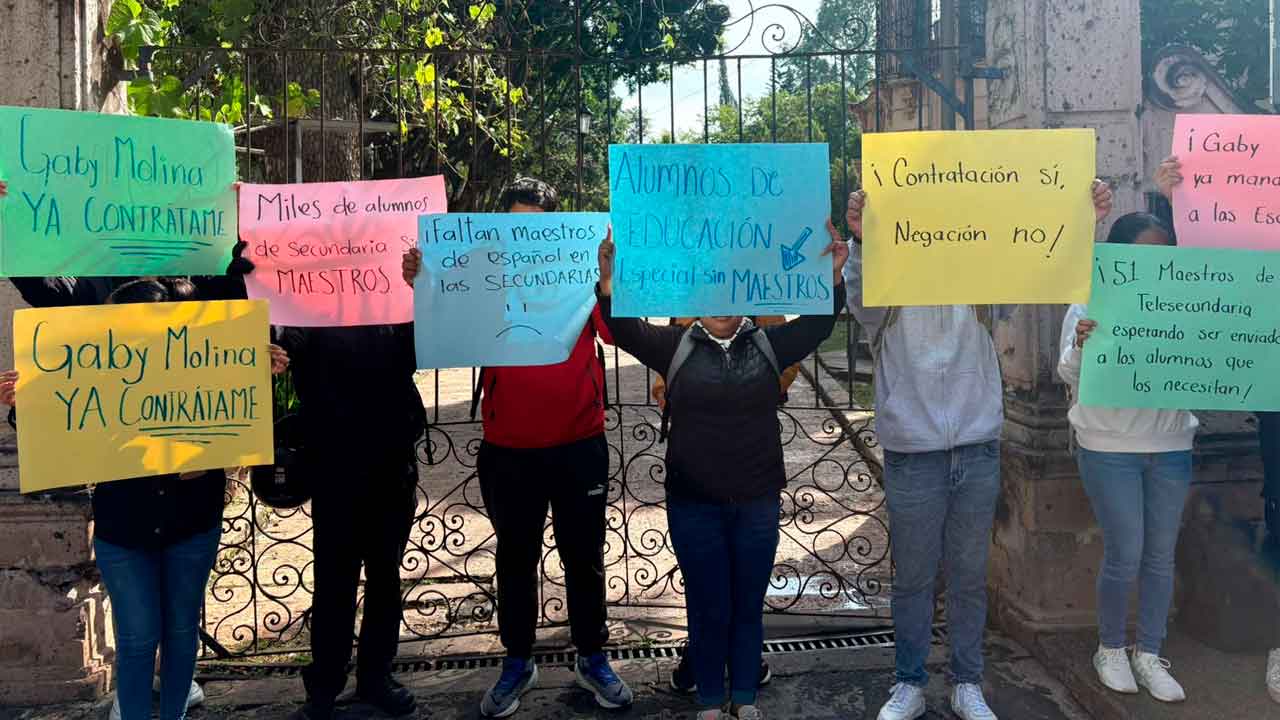 Gaby Molina
YA CONTRÁTAME
Gaby Molina
YA CONTRÁTAME
Miles de alumnos
de Secundaria
MAESTROS
¡Faltan maestros
de español en
las SECUNDARIA
!!
ALUMNOS DE
EDUCACIÓN
Especial sin
MAESTROS
¡Contratación sí,
Negación no!
¡Gaby
ya
a las
¡51 Maestros de
Telesecundaria
esperando ser
a los alumnos que
los necesitan!
PUMA